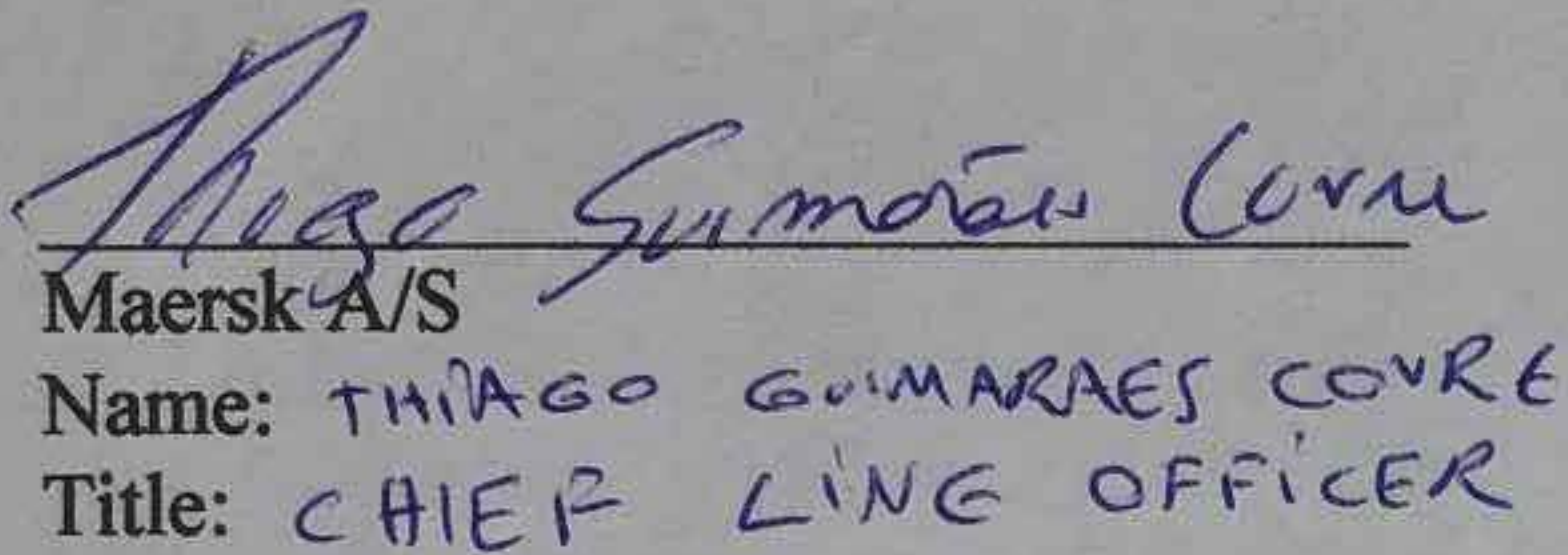 Thiago Guimarães Covre
Maersk A/S
Name: THIAGO GUIMARAES COVRE
Title: CHIEF LINE OFFICER